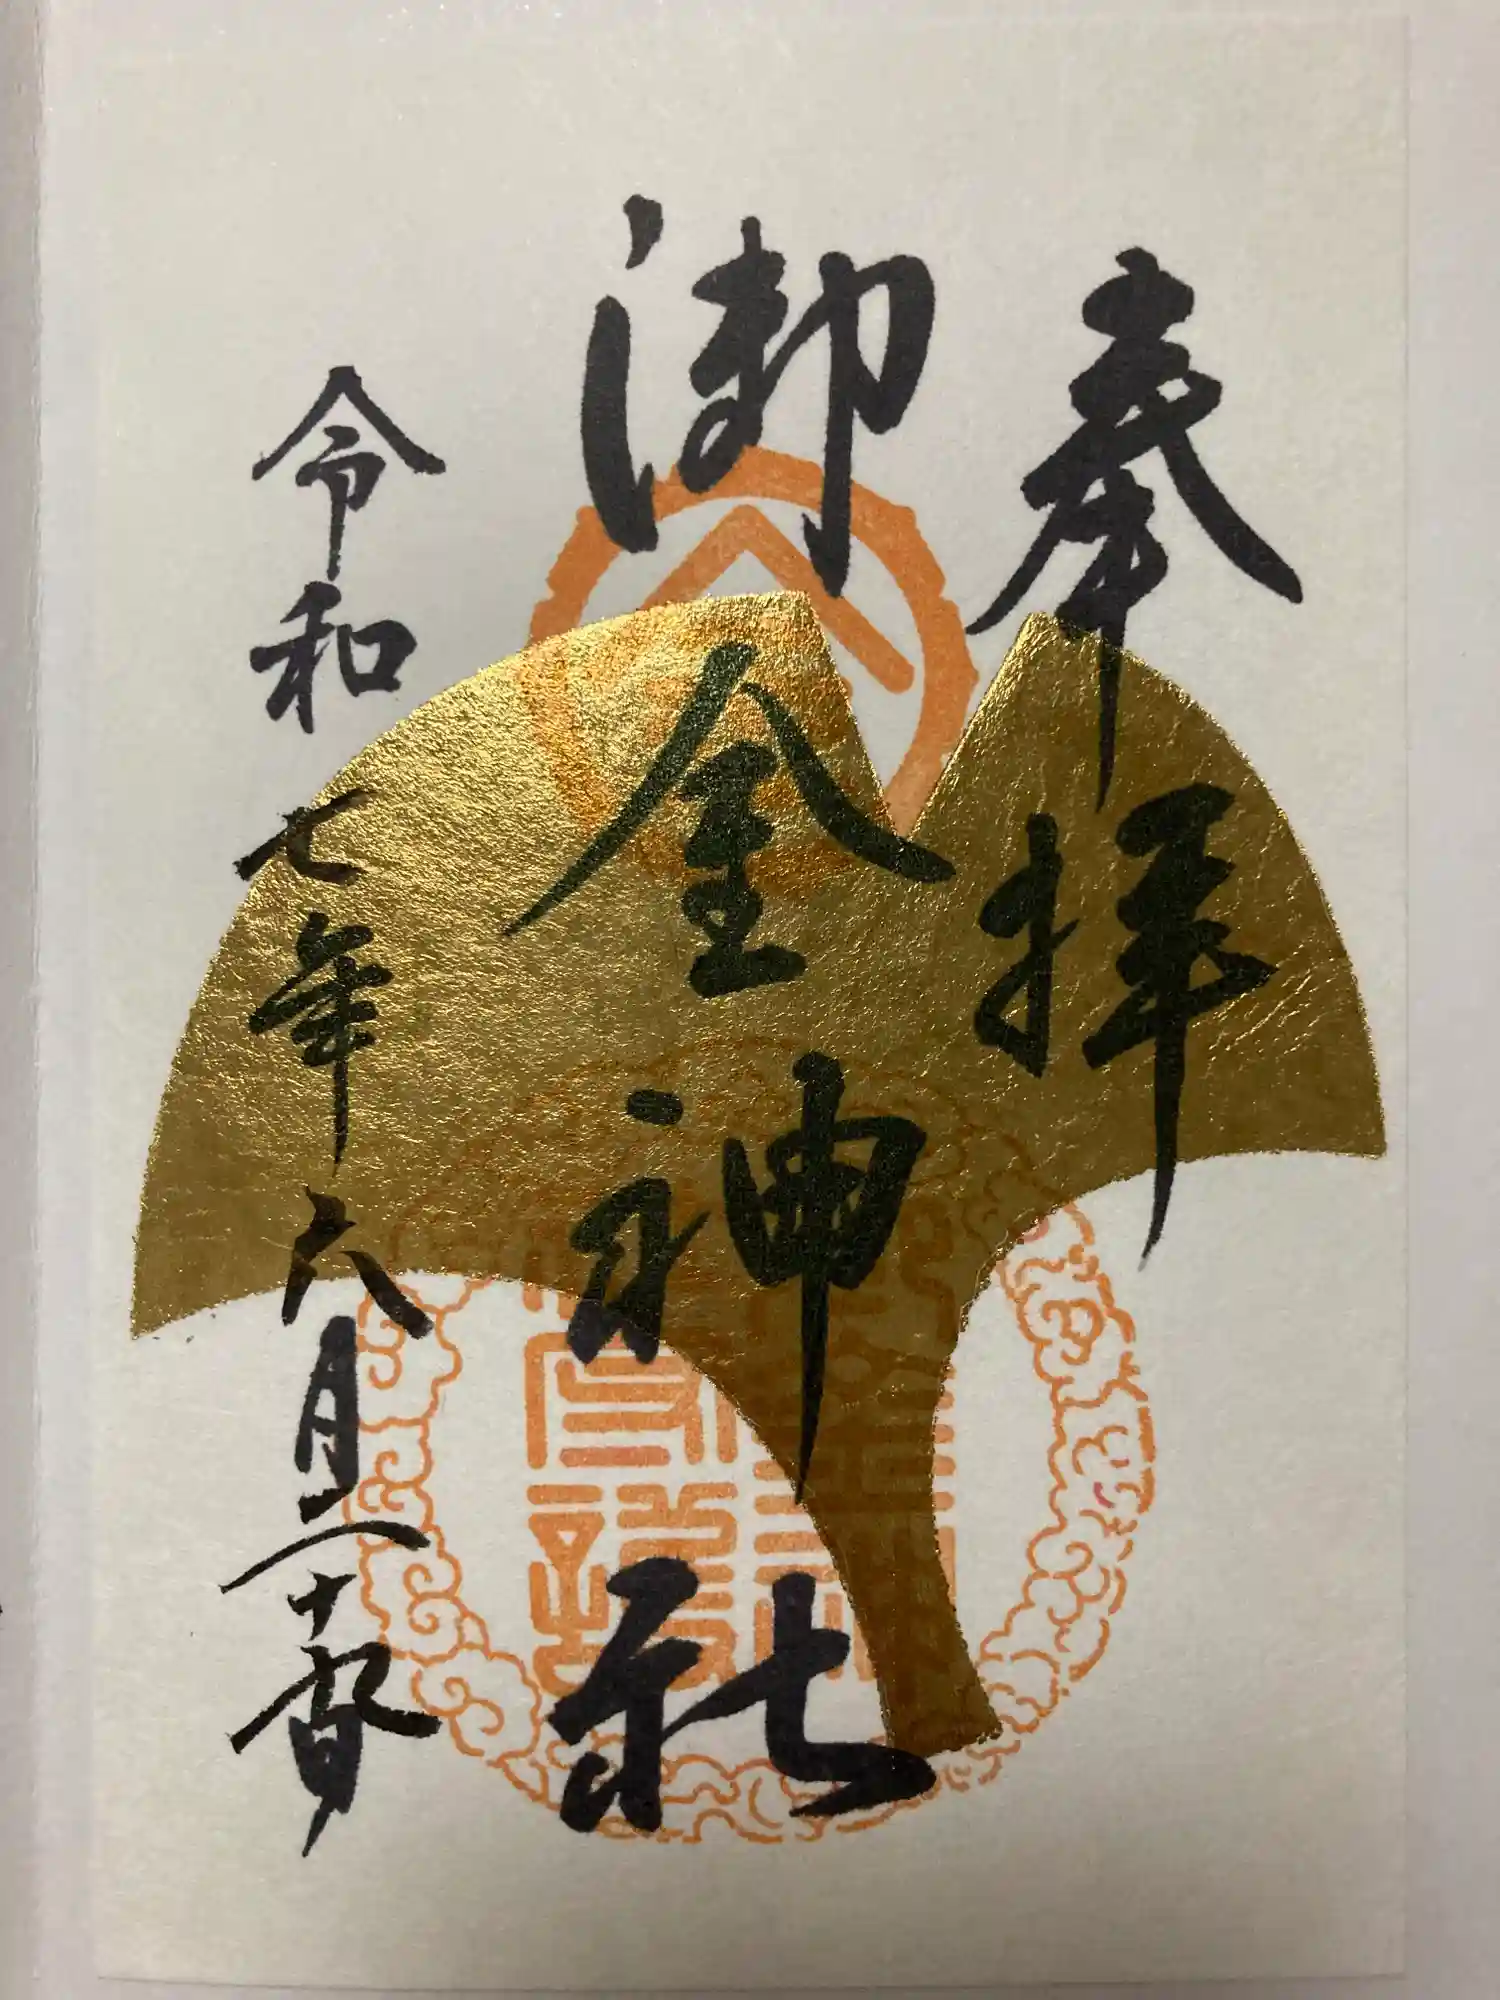 奉拝
御金神社
令和七年六月二十九日